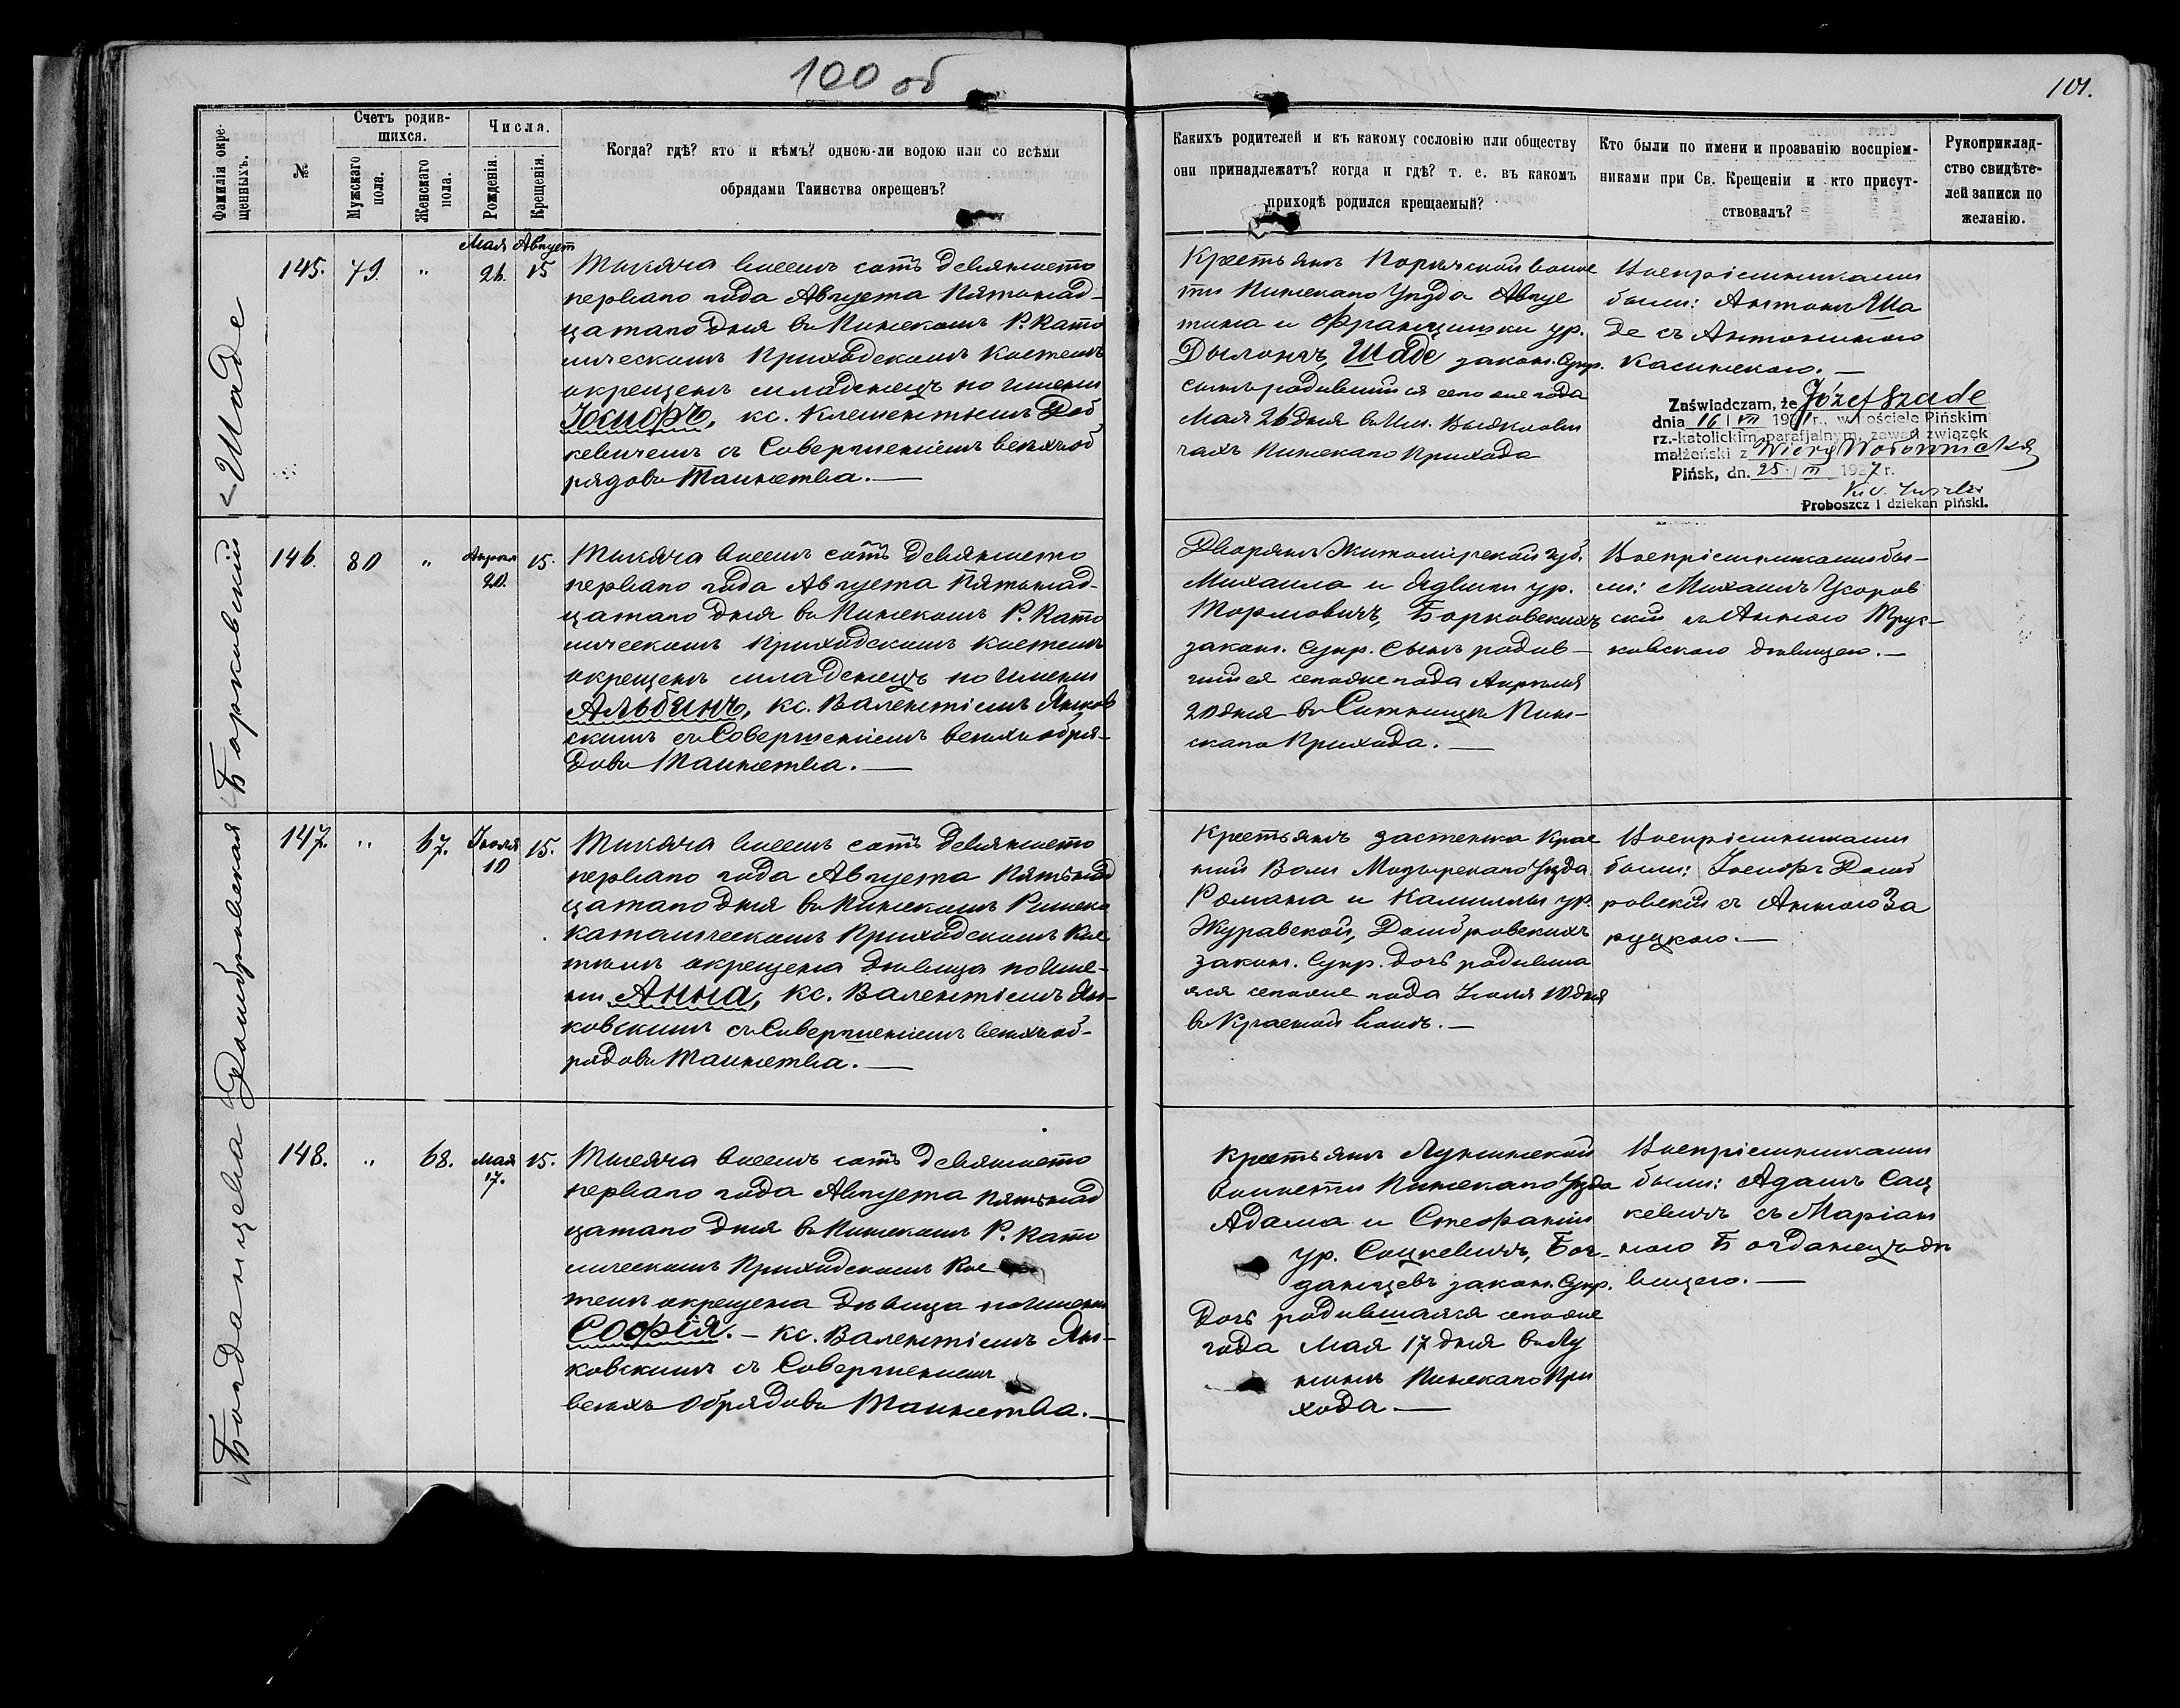 100 об
101.
Фамилія окре-
щенныхъ.
№
Счетъ родив-
шихся.
Мужскаго
пола.
Женскаго
пола.
Числа.
Рожденія.
Крещенія.
Когда? гдѣ? кто и кѣмъ? одною-ли водою или со всѣми
обрядами Таинства окрещенъ?
Какихъ родителей и къ какому сословію или обществу
они принадлежатъ? когда и гдѣ? т. е. въ какомъ
приходѣ родился крещаемый?
Кто были по имени и прозванію воспріем-
никами при Св. Крещеніи и кто присут-
ствовалъ?
Рукоприклад-
ство свидѣте-
лей записи по
желанію.
Шаде
145.
79.
"
Мая
26.
Август
15
Тысяча восемь сотъ девяносто
перваго года Августа Пятнад-
цатаго дня въ Пинскомъ Р. Като
лическомъ Приходскомъ Костелѣ
окрещенъ младенецъ по имени
Іосифъ, кс. Клементіемъ Доб
кевичемъ съ Совершеніемъ всѣхъ об
рядовъ Таинства.—
Крестьянъ Поричской волос
ти Пинскаго Уѣзда Авгус
тина и Францишки ур.
Шаде закон. Супр.
сынъ родившійся сего же года
Мая 26 дня въ Им.
Пинскаго Прихода
Воспріемниками
были: Антонъ Ша
де съ Антониною
Касинскою.—
Zaświadczam, że Józef Szade
dnia 16/VII 1901 r., w kościele Pińskim
rz.-katolickim parafjalnym, zawarł związek
małżeński z Wierą
Pińsk, dn. 25/III 1927 r.
Proboszcz i dziekan piński.
Борковскій
146.
80
"
Апрѣля
20.
15.
Тысяча восемь сотъ девяносто
перваго года Августа Пятнад-
цатаго дня въ Пинскомъ Р. Като
лическомъ Приходскомъ Костелѣ
окрещенъ младенецъ по имени
Альбинъ, кс. Валентіемъ Янков
скимъ съ Совершеніемъ всѣхъ обря-
довъ Таинства.—
Дворянъ Житомірской губ.
Михаила и Ядвиги ур.
Борковскихъ
закон. Супр. сынъ родив-
шійся сего же года Апрѣля
20 дня въ Ситницѣ Пин-
скаго Прихода.—
Воспріемниками бы-
ли: Михаилъ
скій съ Анною
ковскою дѣвицею.—
Домбровская
147.
"
67.
Іюля
10
15.
Тысяча восемь сотъ девяносто
перваго года Августа Пятнад
цатаго дня въ Пинскомъ Римско
католическомъ Приходскомъ Кос
телѣ окрещена дѣвица по име-
ни Анна, кс. Валентіемъ Ян-
ковскимъ съ Совершеніемъ всѣхъ об-
рядовъ Таинства.—
Крестьянъ застенка Крас
ной Воли Мозырскаго Уѣзда
Романа и Камиллы ур.
Журавской, Домбровскихъ
закон. Супр. дочь родивша
яся сего же года Іюля 10 дня
въ Красной Волѣ.—
Воспріемниками
были: Іосифъ Домб
ровскій съ Анною За
руцкою.—
Богданцева
148.
"
68.
Мая
17.
15.
Тысяча восемь сотъ девяносто
перваго года Августа Пятнад
цатаго дня въ Пинскомъ Р. Като
лическомъ Приходскомъ Кос
телѣ окрещена дѣвица по имени
Софія.— кс. Валентіемъ Ян-
ковскимъ съ Совершеніемъ
всѣхъ Обрядовъ Таинства.—
Крестьянъ Лунинской
волости Пинскаго Уѣзда
Адама и Стефаніи
ур. Сацкевичъ, Бог-
данцевъ закон. Супр.
дочь родившаяся сего же
года Мая 17 дня въ Лу
нинѣ Пинскаго При
хода.—
Воспріемниками
были: Адамъ Сац
кевичъ съ Маріан
ною Богданецъ дѣ
вицею.—